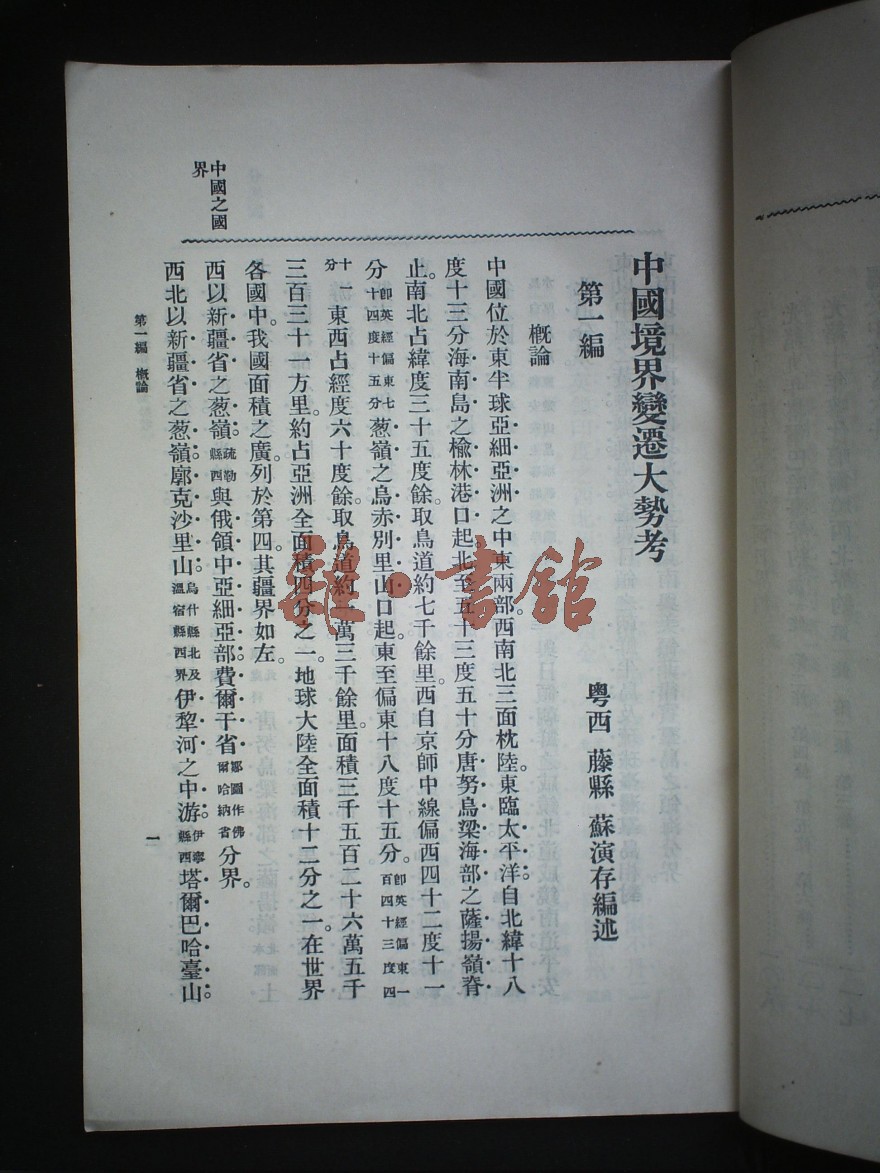 中國境界變遷大勢考
第一編
粵西 藤縣 蘇演存編述
概論
中國位於東半球亞細亞洲之中東兩部。西南北三面枕陸。東臨太平洋。自北緯十八
度十三分海南島之榆林港口起。北至五十三度五十分唐努烏梁海部之薩揚嶺脊
止。南北占緯度三十五度餘。取鳥道約七千餘里。西自京師中線偏西四十二度十一
分卽英經偏東七十四度十五分葱嶺之烏赤別里山口起。東至偏東十八度十五分。卽英經偏東一百四十三度四
十一分東西占經度六十度餘。取鳥道約一萬三千餘里。面積三千五百二十六萬五千
三百三十一方里。約占亞洲全面積四分之一。地球大陸全面積十二分之一。在世界
各國中。我國面積之廣。列於第四。其疆界如左。
西以新疆省之葱嶺。疏勒縣西與俄領中亞細亞部費爾干省鄒圖作佛爾哈納省分界。
西北以新疆省之葱嶺。廓克沙里山。烏什縣北及溫宿縣西界伊犂河之中游。伊寧縣西塔爾巴哈臺山。
中國之國界
第一編 概論
一
雒·書館